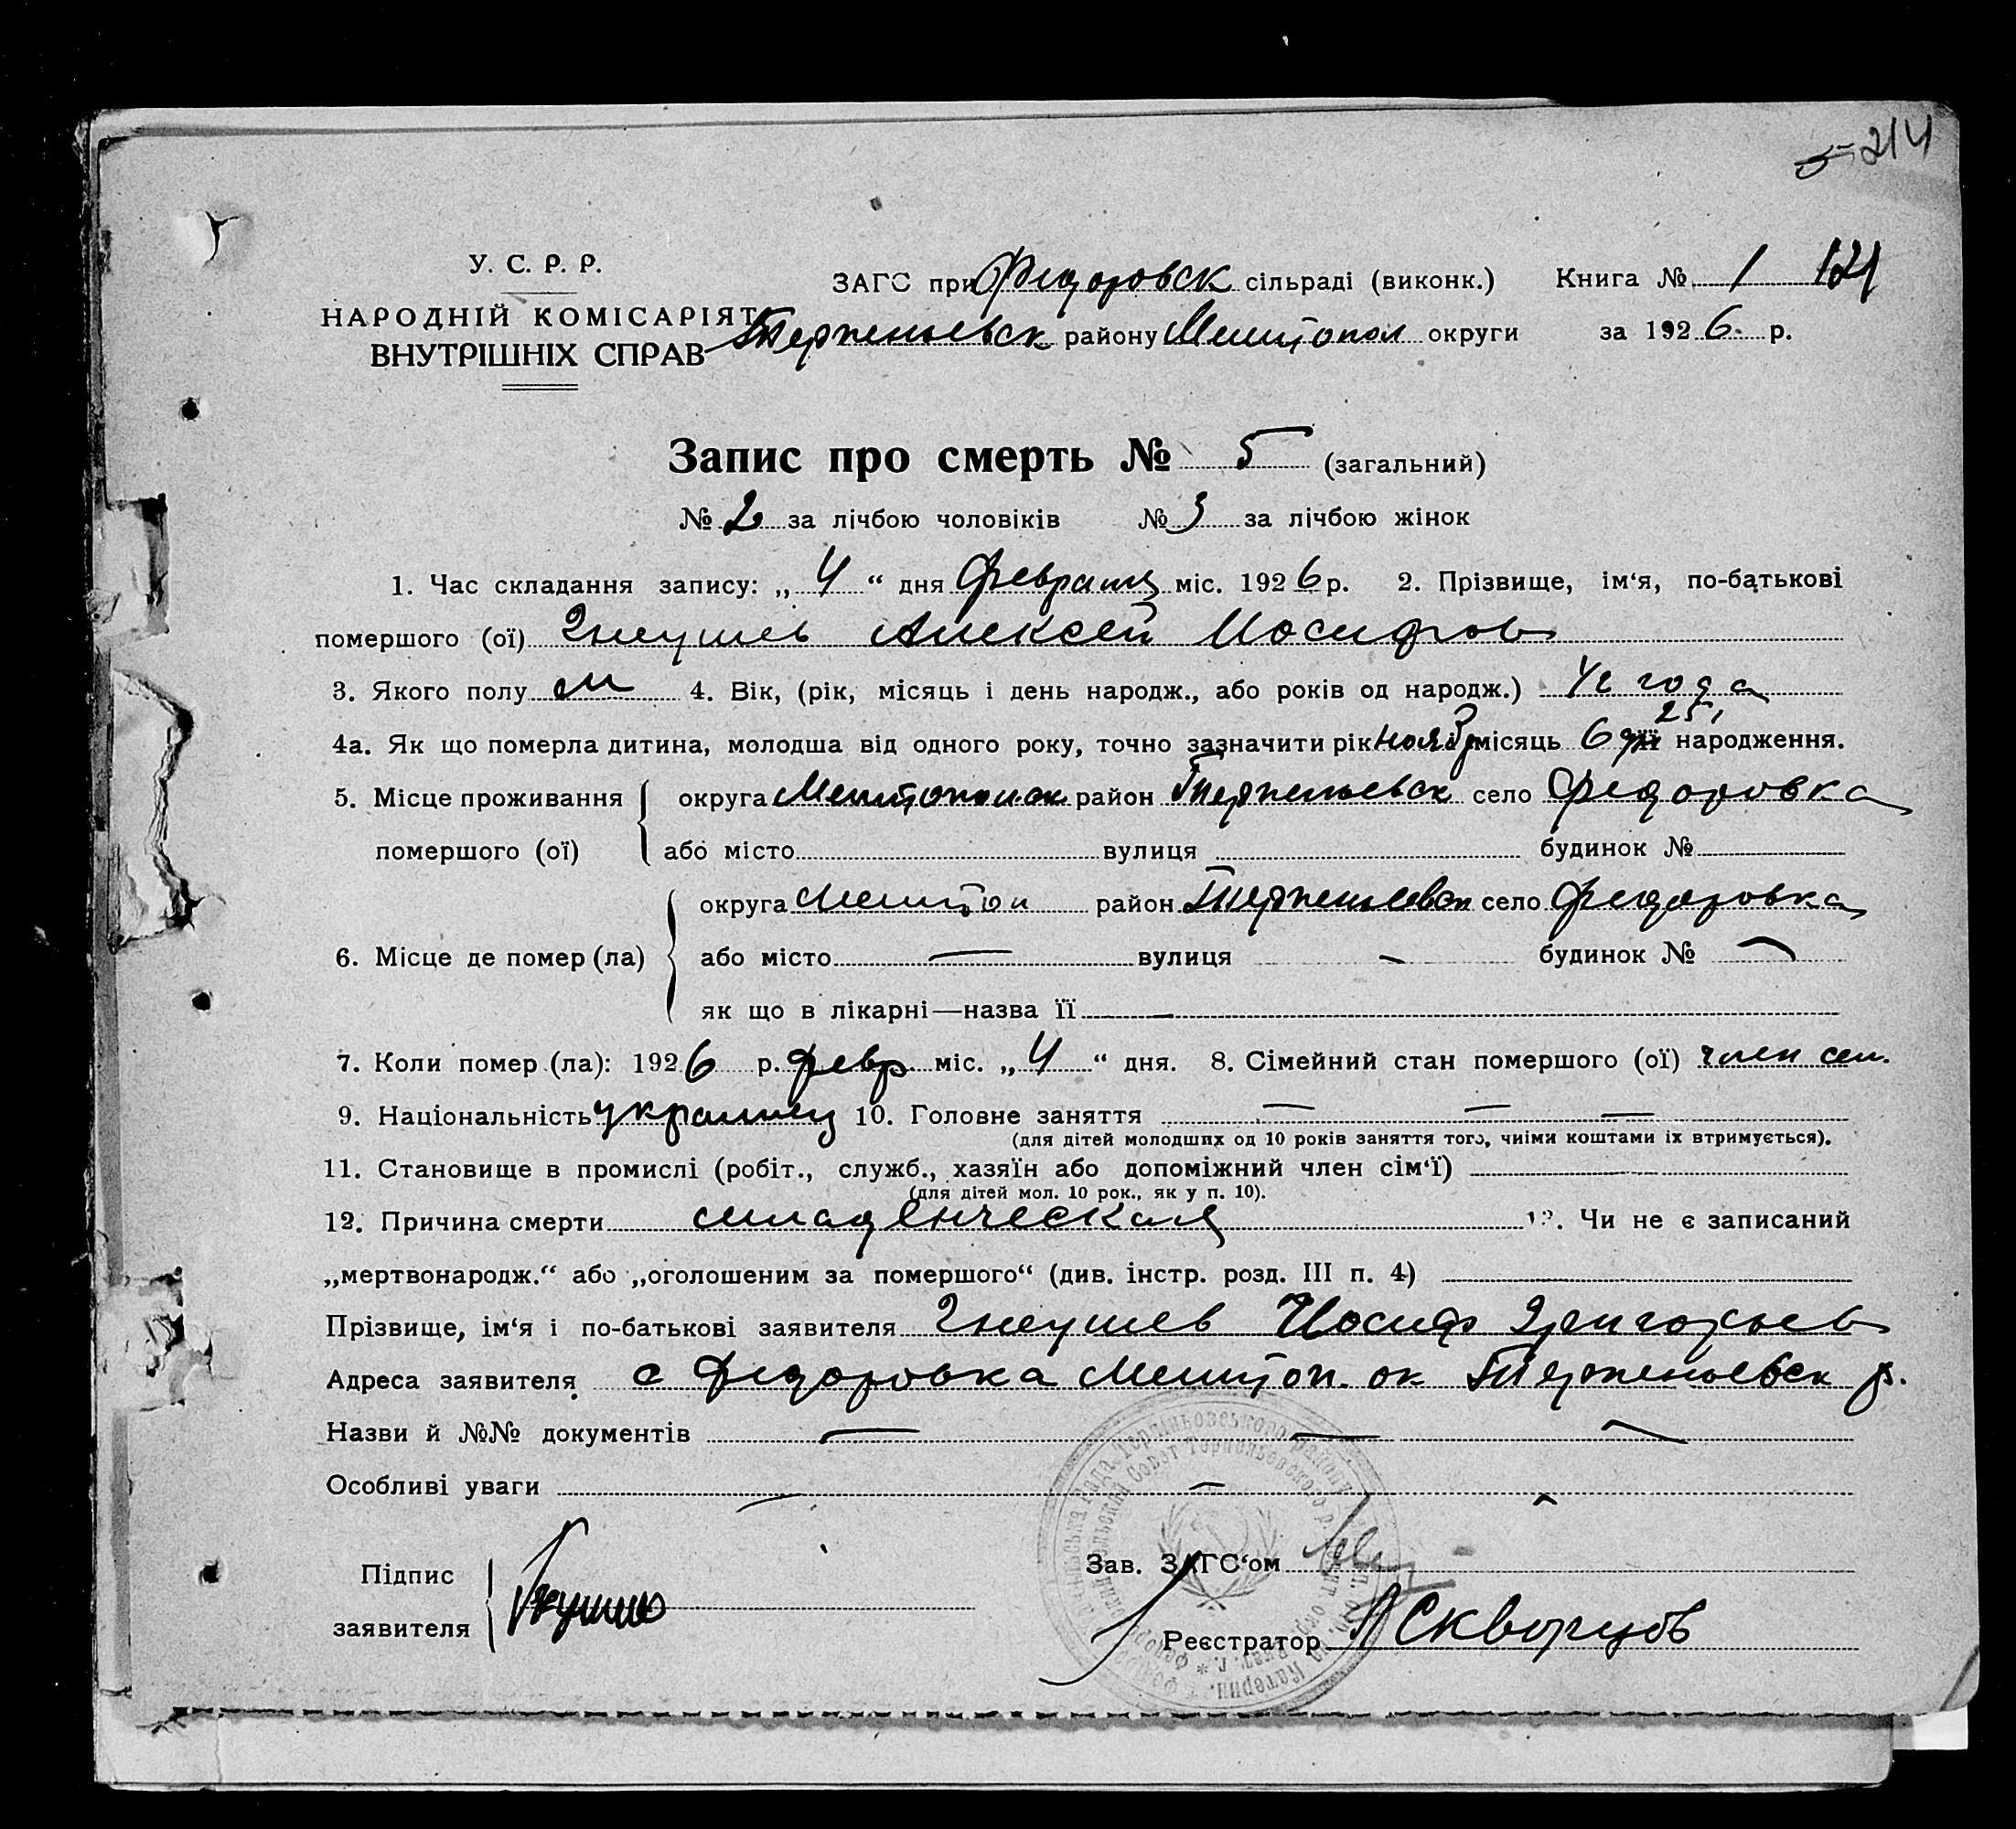 214
У. С. Р. Р.
НАРОДНІЙ КОМІСАРІЯТ
ВНУТРІШНІХ СПРАВ
ЗАГС при Федоровск сільраді (виконк.) Книга № 1 121
Терпеньевск району Мелитопол округи за 1926 р.
Запис про смерть № 5 (загальний)
№ 2 за лічбою чоловіків № 3 за лічбою жінок
1. Час складання запису: „ 4 “ дня февраля міс. 1926 р. 2. Прізвище, ім‘я, по-батькові
помершого (ої) Гнеушев Алексей Иосифов
3. Якого полу м 4. Вік, (рік, місяць і день народж., або років од народж.) 1/2 года
4а. Як що померла дитина, молодша від одного року, точно зазначити рік 25 місяць 6 народження.
5. Місце проживання округа Мелитопольск район Терпеньевск село Федоровка
помершого (ої) або місто вулиця будинок №
округа Мелитоп район Терпеньевск село Федоровка
6. Місце де помер (ла) або місто — вулиця - будинок № —
як що в лікарні—назва її —
7. Коли помер (ла): 1926 р. февр. міс. „ 4 “ дня. 8. Сімейний стан помершого (ої) член сем.
9. Національність украинец 10. Головне заняття — — —
(для дітей молодших од 10 років заняття того, чиїми коштами їх втримується).
11. Становище в промислі (робіт., служб., хазяїн або допоміжний член сім‘ї)
(для дітей мол. 10 рок., як у п. 10).
12. Причина смерти младенческая 13. Чи не є записаний
„мертвонародж.“ або „оголошеним за помершого“ (див. інстр. розд. III п. 4)
Прізвище, ім‘я і по-батькові заявителя Гнеушев Иосиф Григорьев
Адреса заявителя с Федоровка Мелитоп. ок Терпеньевск р.
Назви й №№ документів — — —
Особливі уваги — — -
Підпис
заявителя Гнеушев
Зав. ЗАГС‘ом
Реєстратор Скворцов